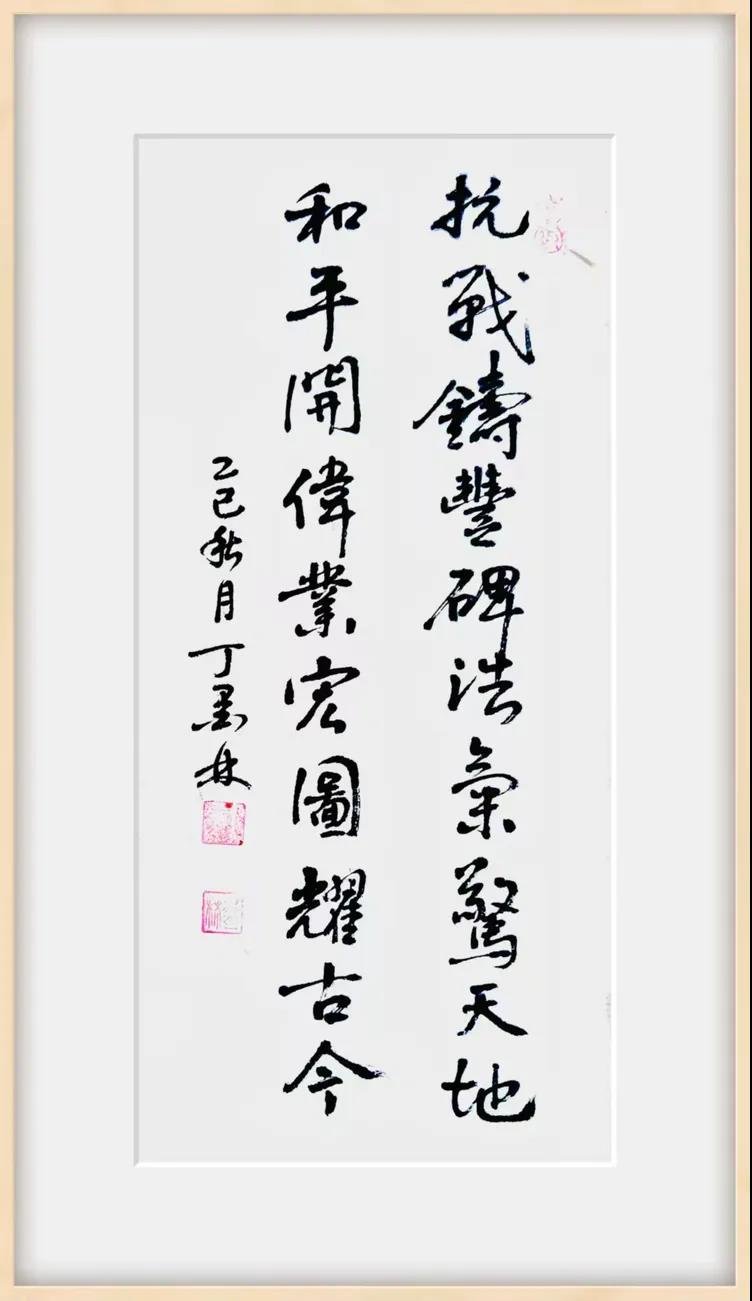 抗戰鑄豐碑浩氣驚天地
和平開偉業宏圖耀古今
乙巳秋月丁墨林